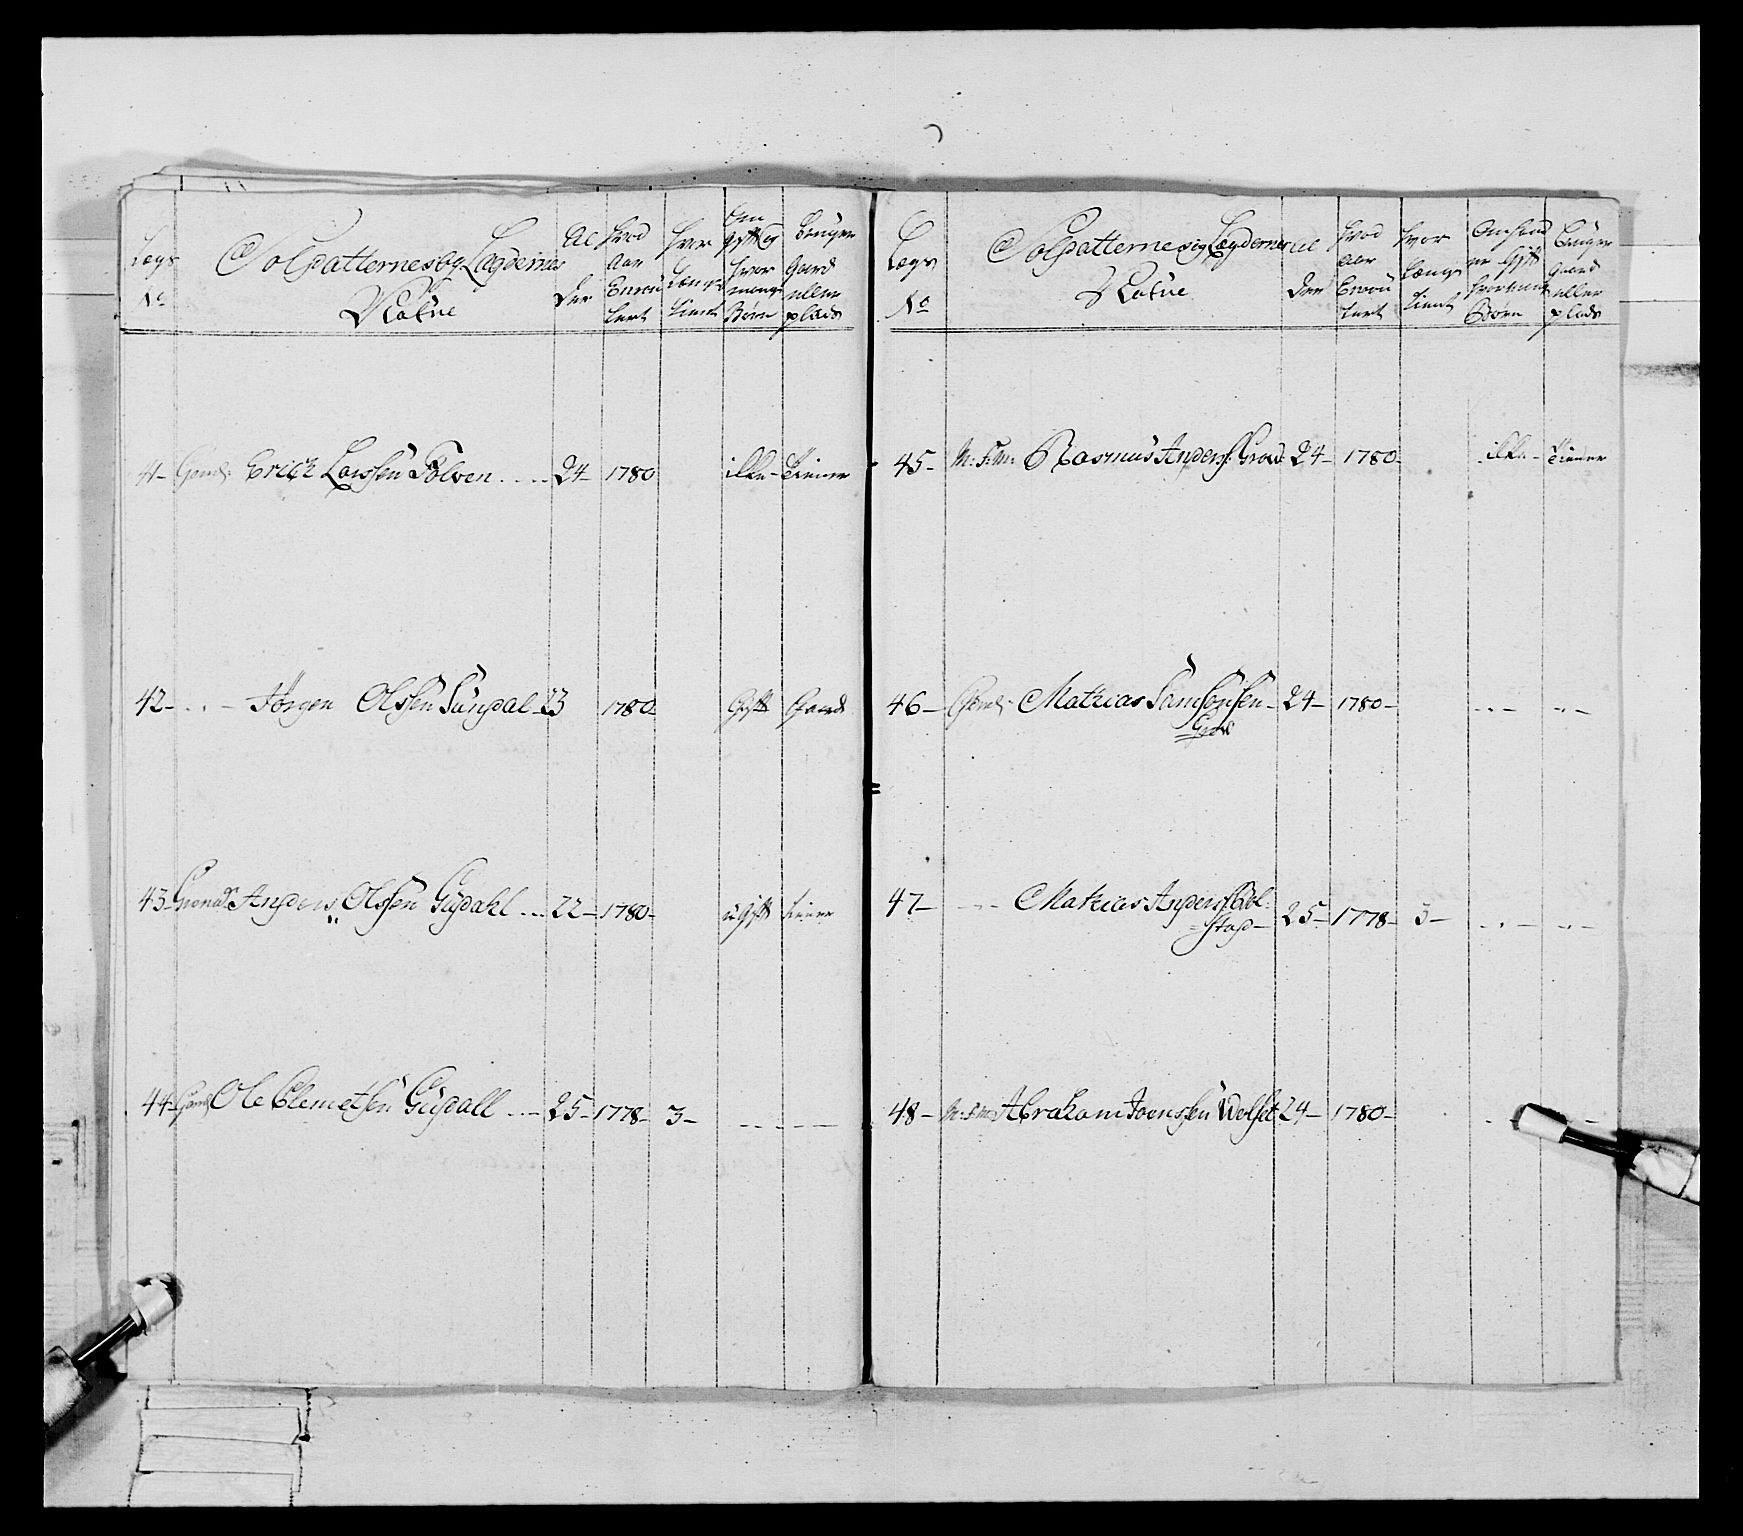 Lægs No
Soldatternes og Lægdernes Nafne
Al der
Hvad Aar Enroulert
Hvor Længe Tient
Om Gift og Hvor mange Børn
Bruger Gaard eller plads
41- Gemb: Erich Larssen Tolven .... 24- 1780 ikke- Tiener
42- . . - Jörgen Olssen Sundal- 23 1780- Gift Gaard
43- Grenad: Anders Olssen Gusdahl ... 22- 1780- ugift tiener
44- Gemb: Ole Clemetsen Gusdall ... 25- 1778- 3- - - - - -
Lægs No
Soldatternes og Lægdernes Nafne
Al der
Hvad Aar Enroulert
Hvor Længe Tient
er Gift Hvor mange Børn
Bruger Gaard eller plads
45- Rasmus Anders: 24- 1780- ikke- Tiener
46- Gemb: Mathias Samsonsen- 24- 1780- - . . - - . . -
47- - - - Mathias Anders:
stad- 25- 1778- 3- - . . - - . . -
48- Abraham Joenssen Wolset 24- 1780-